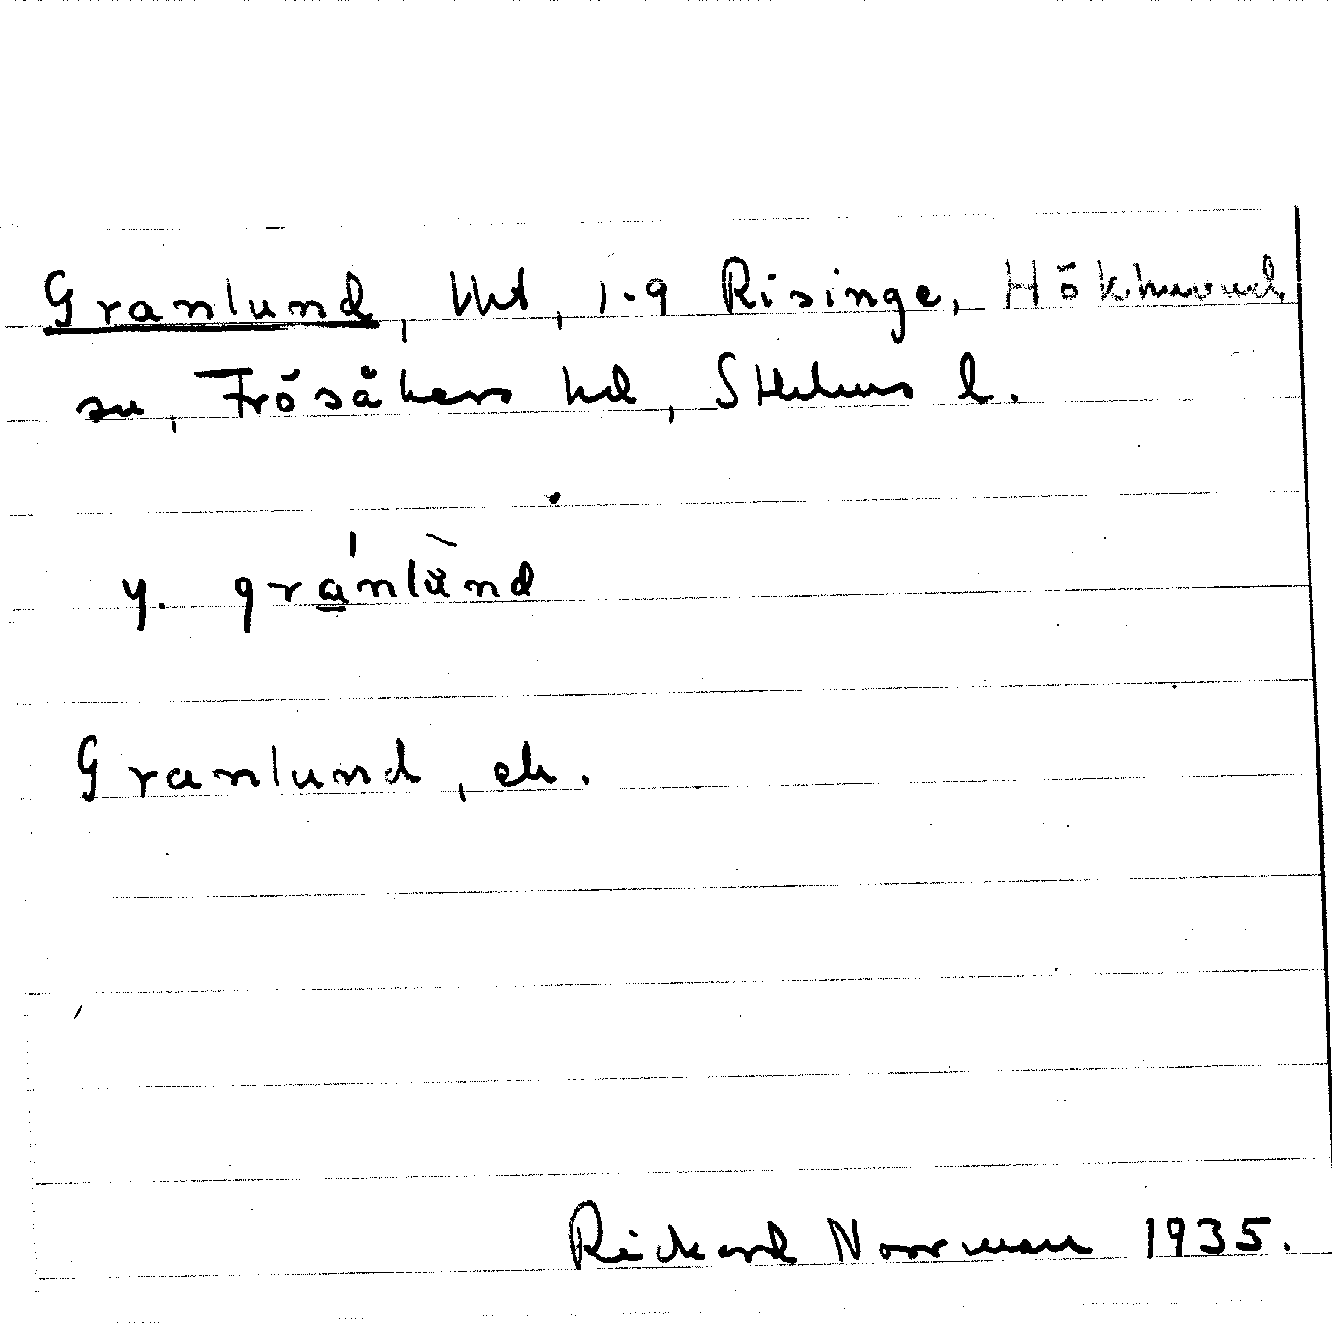 Granlund, lht, 1.9 Risinge, Hökhuvud
sn, Frösåkers hd, Sthlms l.
y. gránlùnd
Granlund, ek.
Rickard Norrman 1935.